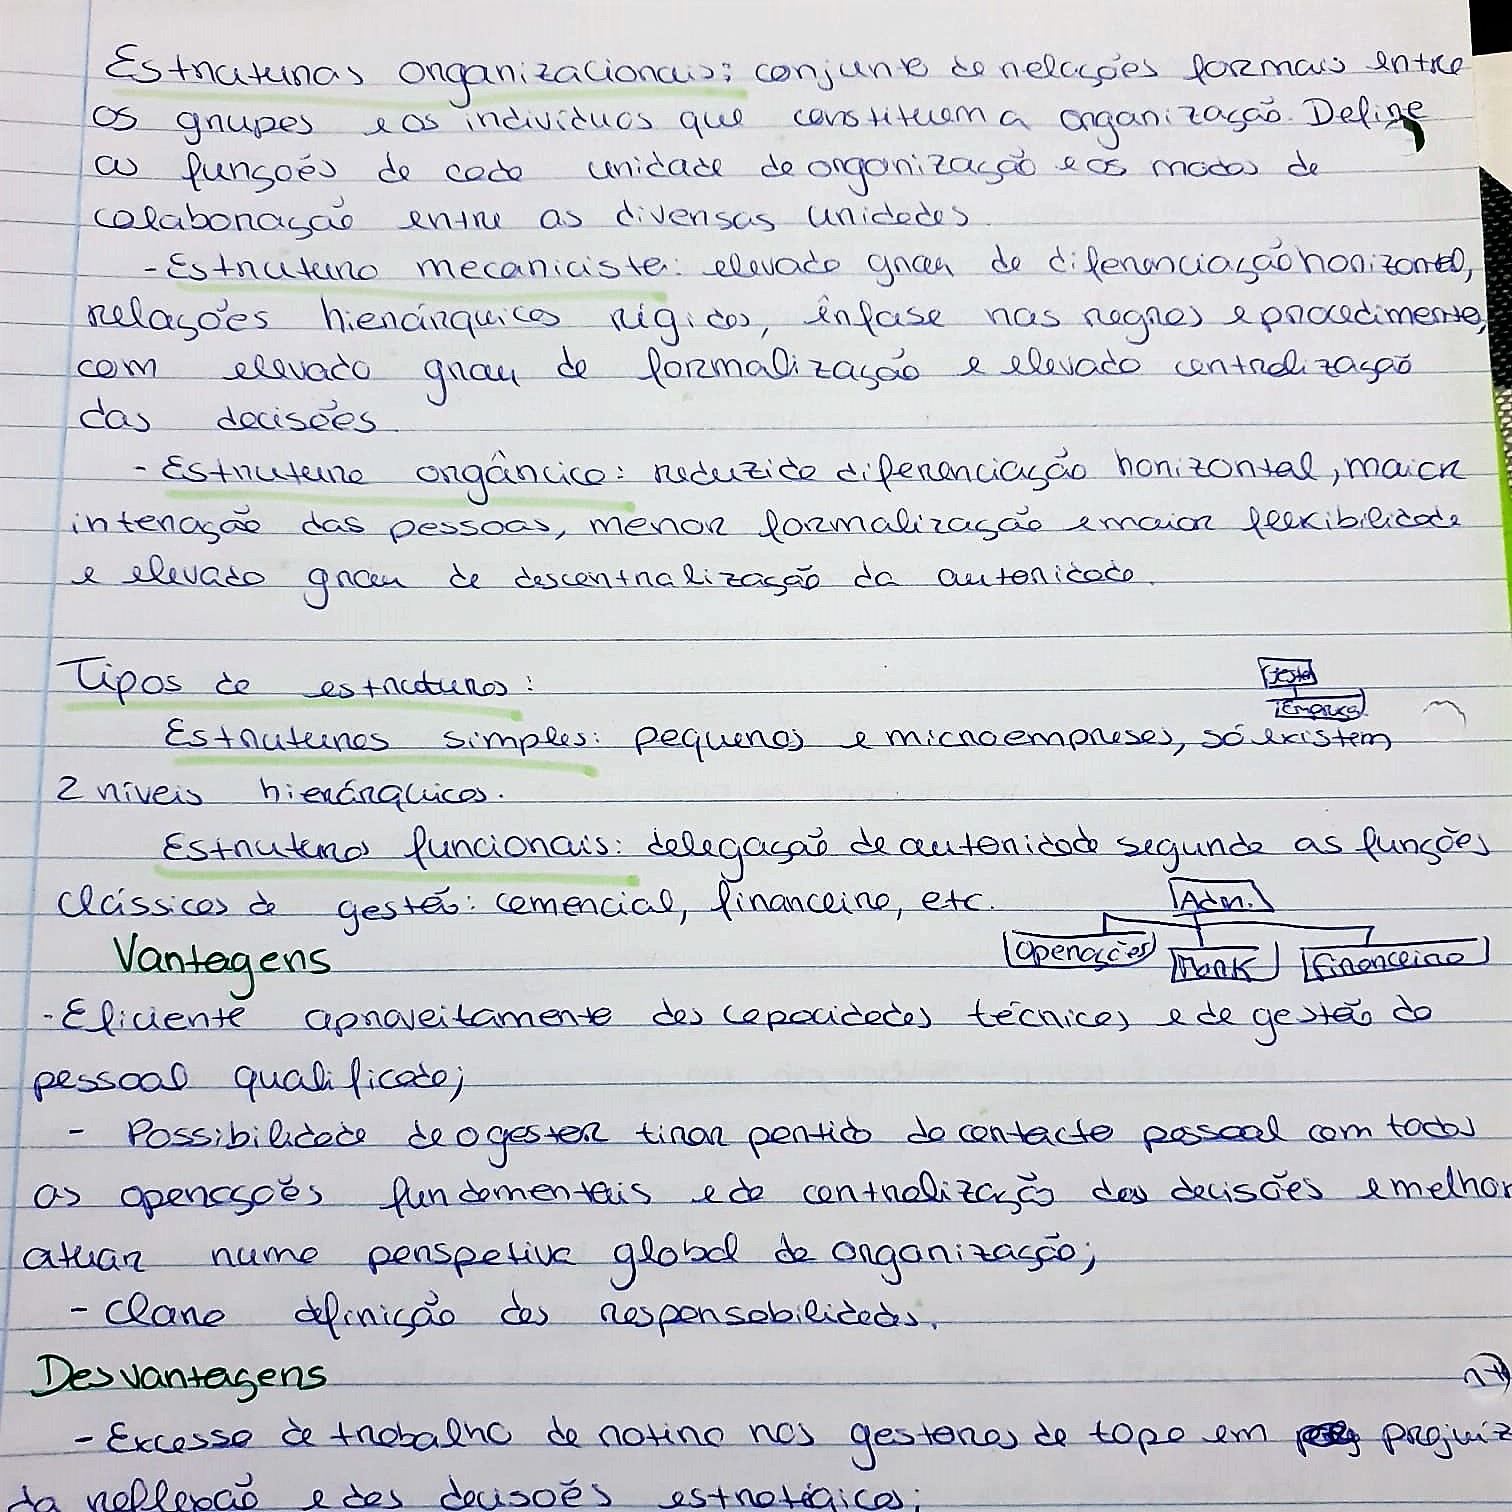 Estruturas organizacionais: conjunto de relações formais entre
os grupos e os indivíduos que constituem a organização. Define
as funções de cada unidade de organização e os modos de
colaboração entre as diversas unidades.
- Estrutura mecanicista: elevado grau de diferenciação horizontal,
relações hierárquicas rígidas, ênfase nas regras e procedimento,
com elevado grau de formalização e elevado centralização
das decisões.
- Estrutura orgâncica: reduzida diferenciação horizontal, maior
interação das pessoas, menor formalização e maior flexibilidade
e elevado grau de descentralização da autoridade.
Tipos de estruturas:
Estruturas simples: pequenas e microempresas, só existem
2 níveis hierárquicos.
Estruturas funcionais: delegação de autoridade segundo as funções
clássicas de gestão: comercial, financeiro, etc.
Adm.
Operações Mark Financeiro
Vantagens
- Eficiente aproveitamento das capacidades técnicas e de gestão do
pessoal qualificado;
- Possibilidade de o gestor tirar partido do contacto pessoal com todas
as operações fundamentais e da centralização das decisões e melhor
atuar numa perspetiva global da organização;
- Clara definição das responsabilidades.
Desvantagens
- Excesso de trabalho de rotina nos gestores de topo em prejuiz
da reflexão e das decisões estratégicas;